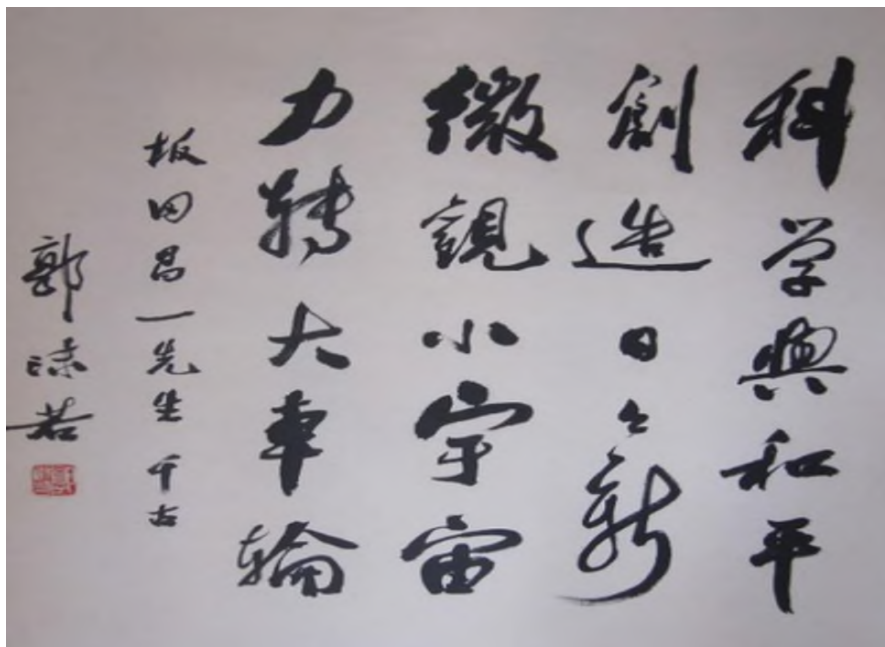 科学與和平
創造日々新
微觀小宇宙
力轉大車輪
坂田昌一先生 千古
郭沫若